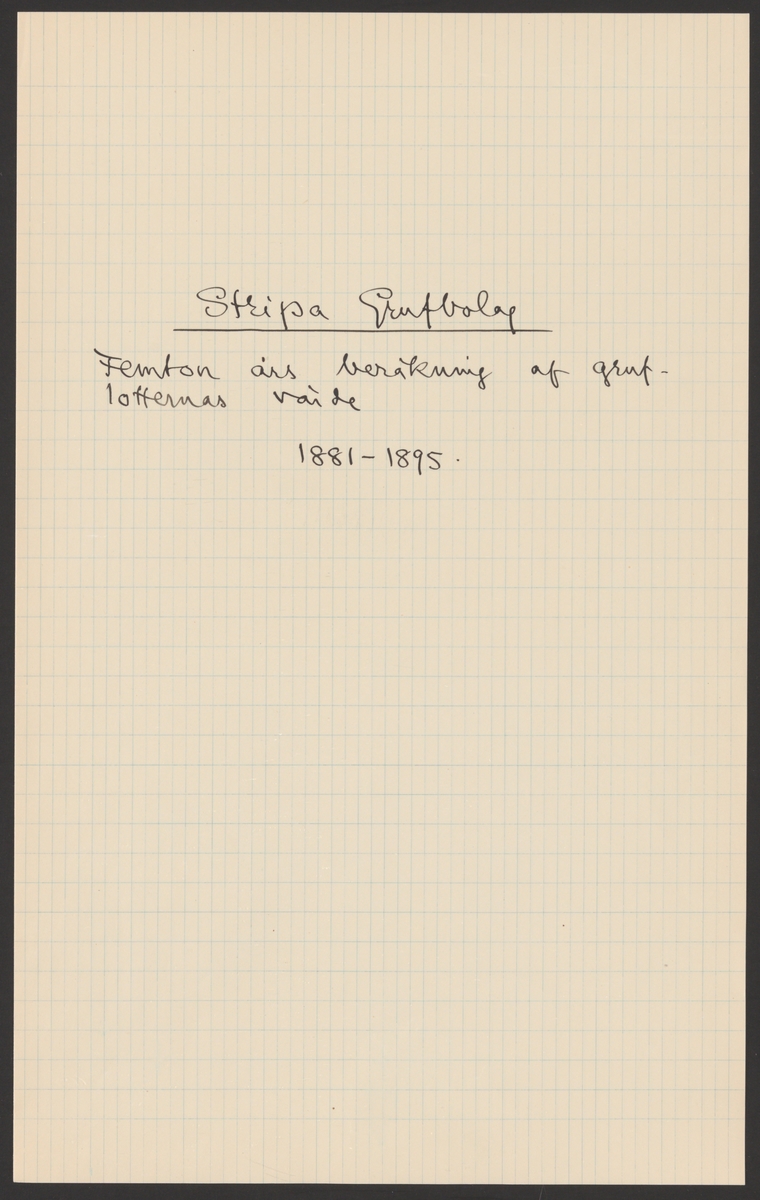 Stripa Grufbolag
Femton års beräkning af gruf-
lotternas värde
1881-1895.